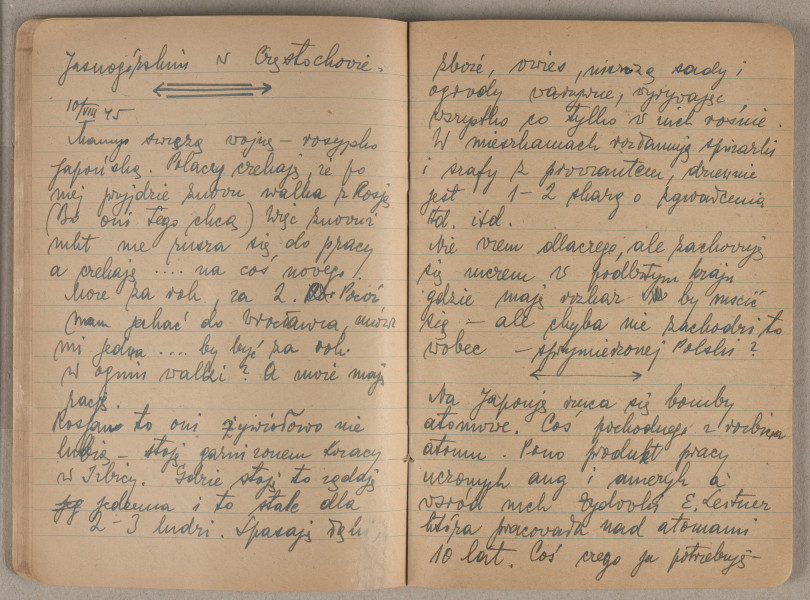 Jasnogórskim w Częstochowie.
10/VIII 45
Mamy świeżą wojnę – rosyjsko
japońską. Polacy czekają, że po
niej przyjdzie znowu walka z Rosją
(Bo oni tego chcą) Więc znowu
nikt nie rusza się do pracy
a czekają .... na coś nowego.
Może za rok, za 2. Pocóż
mam jechać do Wrocławia, mówi
mi jedna .... by być za rok
w ogniu walki? A może mają
rację.
Rosjan to oni żywiołowo nie
lubią – stoją garnizonem kozacy
w Izbicy. Gdzie stoją to żądają
jedzenia i to stale dla
2–3 ludzi. Spasają łąki,
zboże, owies, niszczą sady i
ogrody warzywne, wyrywając
wszystko co tylko w nich rośnie.
W mieszkaniach rozłamują spiżarki
i szafy z prowiantem, dziennie
jest 1–2 skarg o zgwałcenia
itd. itd.
Nie wiem dlaczego, ale zachowują
się niczem w podbitym kraju
gdzie mają rozkaz by mścić
się – ale chyba nie zachodzi to
wobec – sprzymierzonej Polski?
Na Japonję rzuca się bomby
atomowe. Coś pochodnego z rozbicia
atomu. Pono produkt pracy
uczonych ang i ameryk a
wśród nich żydówka E. Leitner
która pracowała nad atomami
10 lat. Coś czego ja potrzebuję–